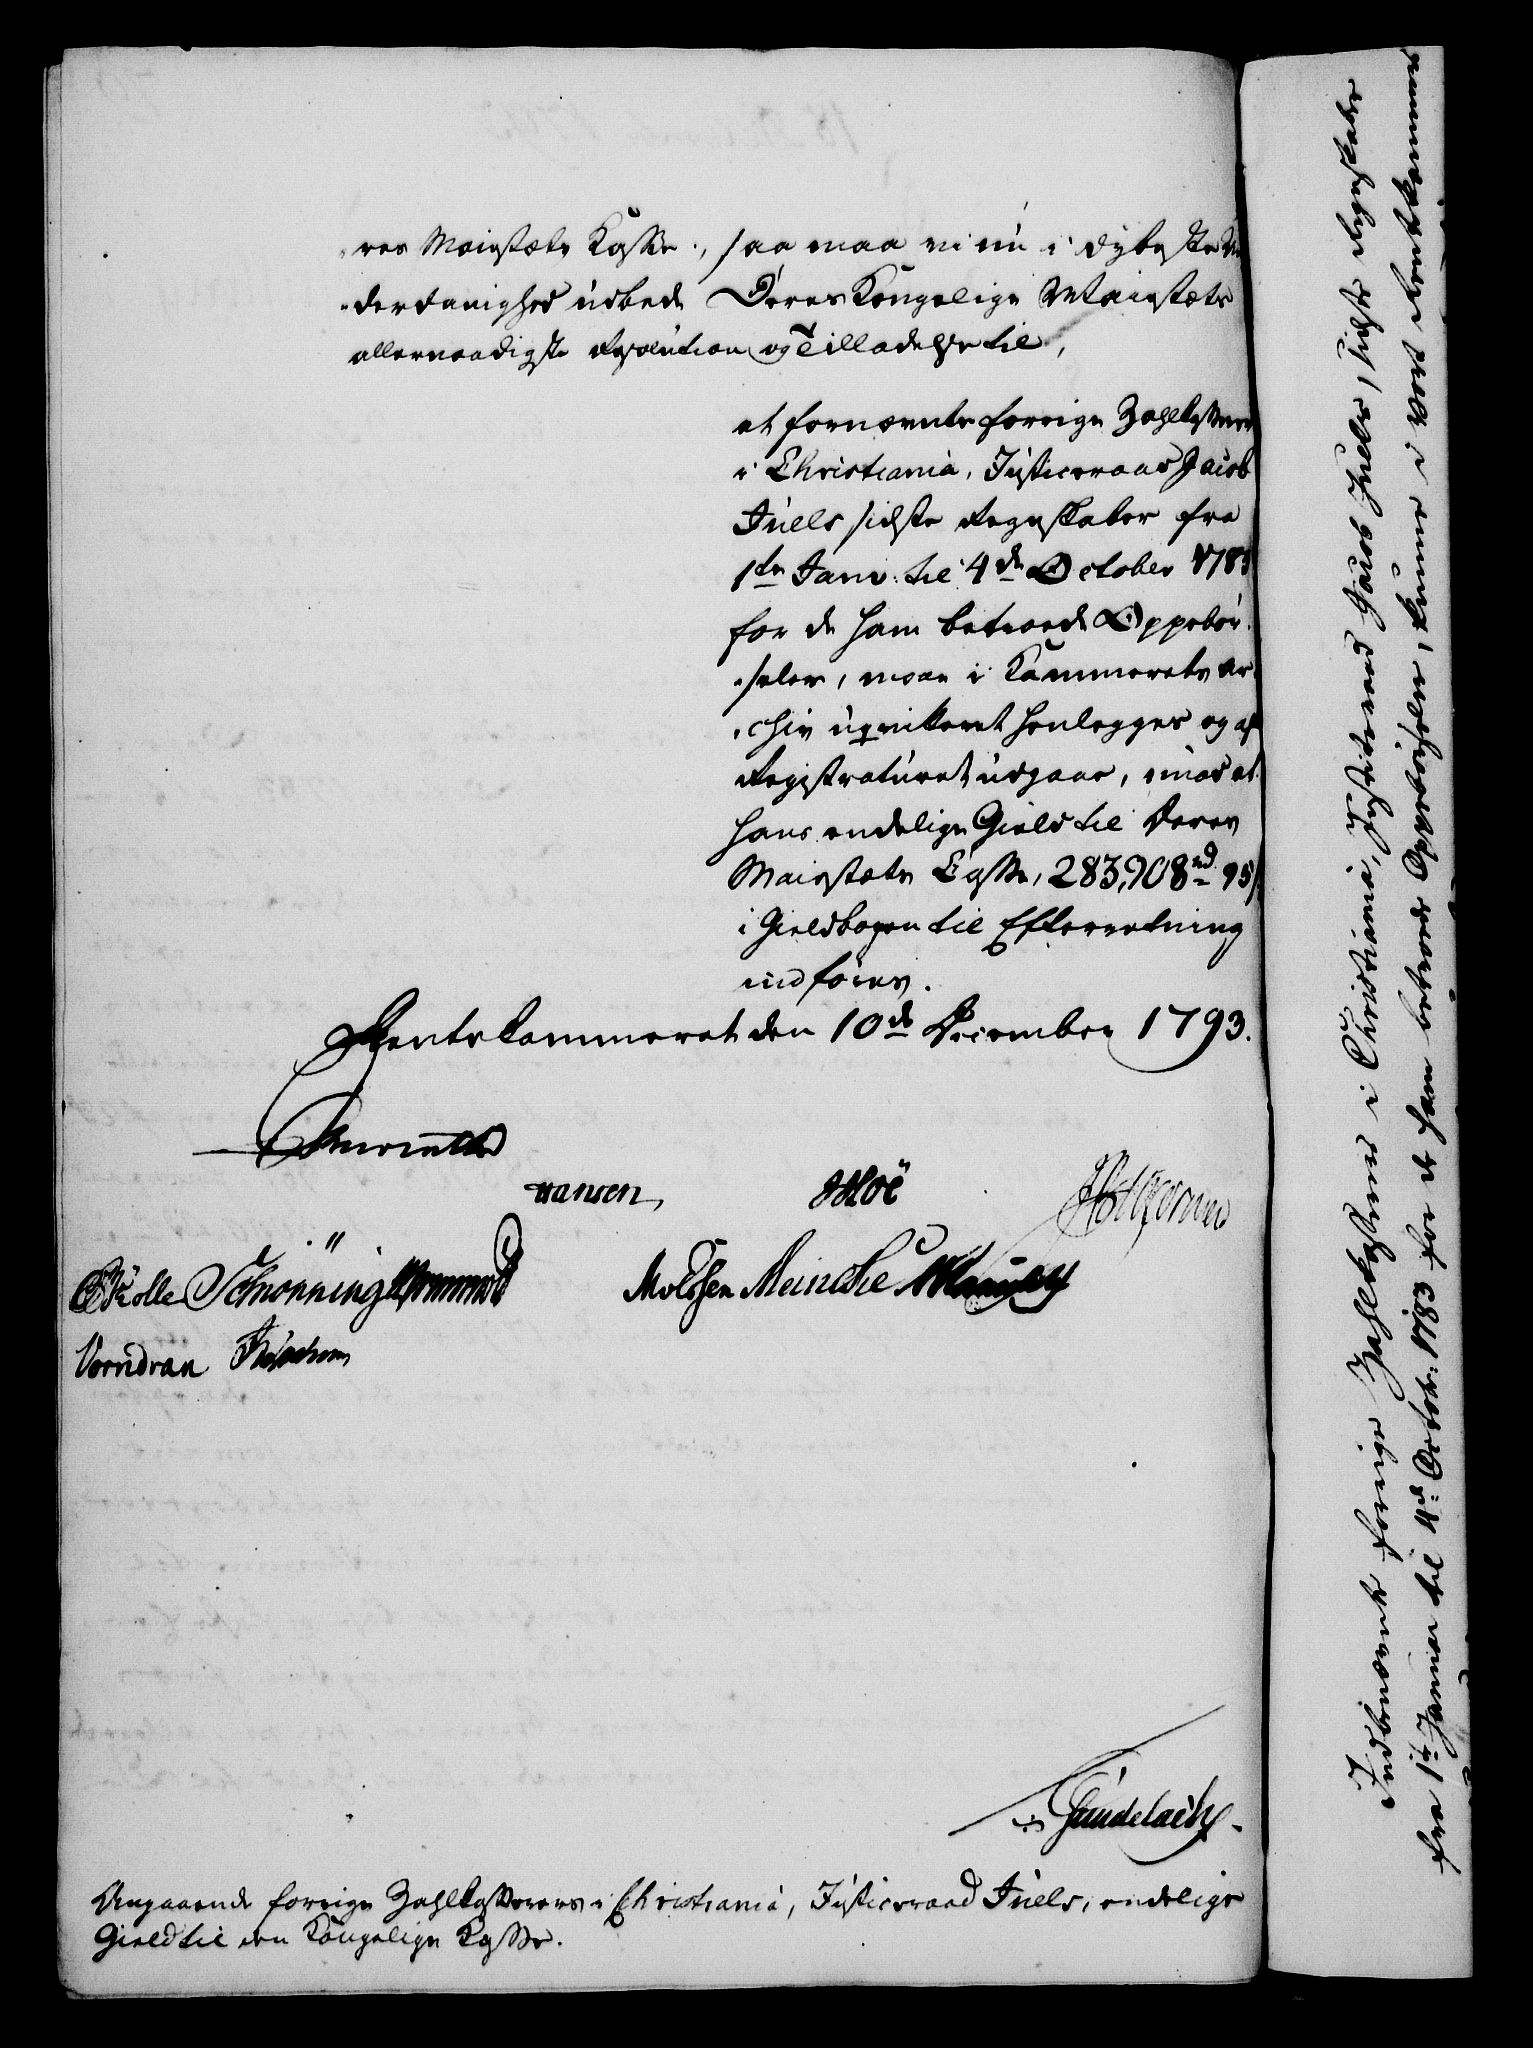 res Maiestæts Kasse, saa maa vi nu i dybeste Un
derdanighed udbede Deres Kongelige Maiestæts
allernaadigste Resolution og Tilladelse til,
at fornævnte forrige Zahlkasserer
i Christiania, Justiceraad Jacob
Juels sidste Regnskaber fra
1te Janv. til 4de October 1783
for de ham betroede Oppebør-
seler, maae i Kammerets Ar-
chiv uqvitteret henlegges og af
Registraturet udgaae, imod at
hans endelige Gield til Deres
Maiestæts Casse, 283,908 rd 95 s
i Gieldbogen til Efterretning
indføres.
Rentekammeret den 10de December 1793.
Hansen,
Schønning
Molssen Meincke
Vorndran
Gundelach
Angaaende forrige Zahlkasserers i Christiania, Justiceraad Juels, endelige
Gield til den Kongelige Kasse.
Indbenævnte forrige Zahlkasserer i Christiania, Justiceraad Jacob Juels, sidste Regnskaber
fra 1te Januar til 4de Octobr: 1783 for de ham betroede Oppebørseler, kunne i Vort Rentekammers